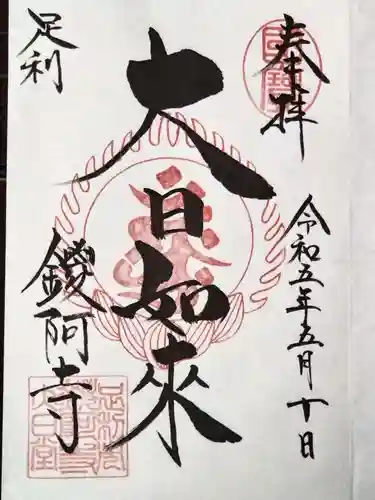 奉拝
國寶
令和五年五月十日
大日如來
足利
鑁阿寺